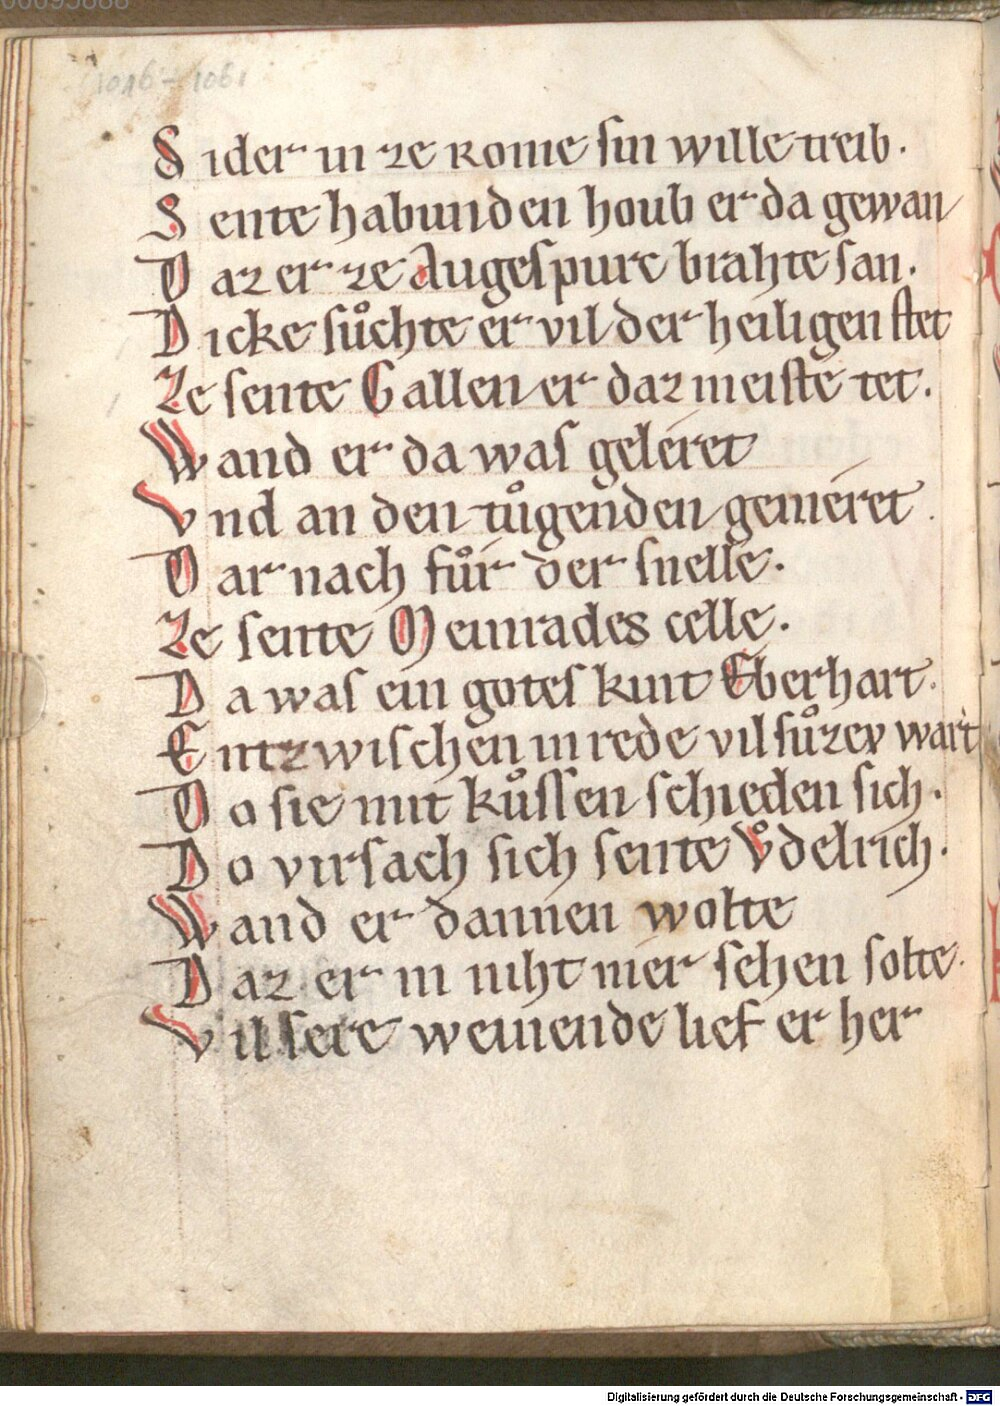 00095888
1046-1061
Sider in ze Rome sin wille treib.
Sente habunden houb er da gewan
Daz er ze Augespurc brahte san.
Dicke sůchte er vil der heiligen stet
Ze sente Gallen er daz meiste tet.
Wand er da was geleret
Vnd an den tůgenden gemeret.
Dar nach fůr der snelle.
Ze sente Meinrades celle.
Da was ein gotes kint Eberhart.
Entzwischen in rede vil sůzev wart
Do sie mit kůssen schieden sich.
Do virsach sich sente Vͦdelrich.
Wand er dannen wolte
Daz er in niht mer sehen solte.
Vil sere weinende lief er her
Digitalisierung gefördert durch die Deutsche Forschungsgemeinschaft - DFG